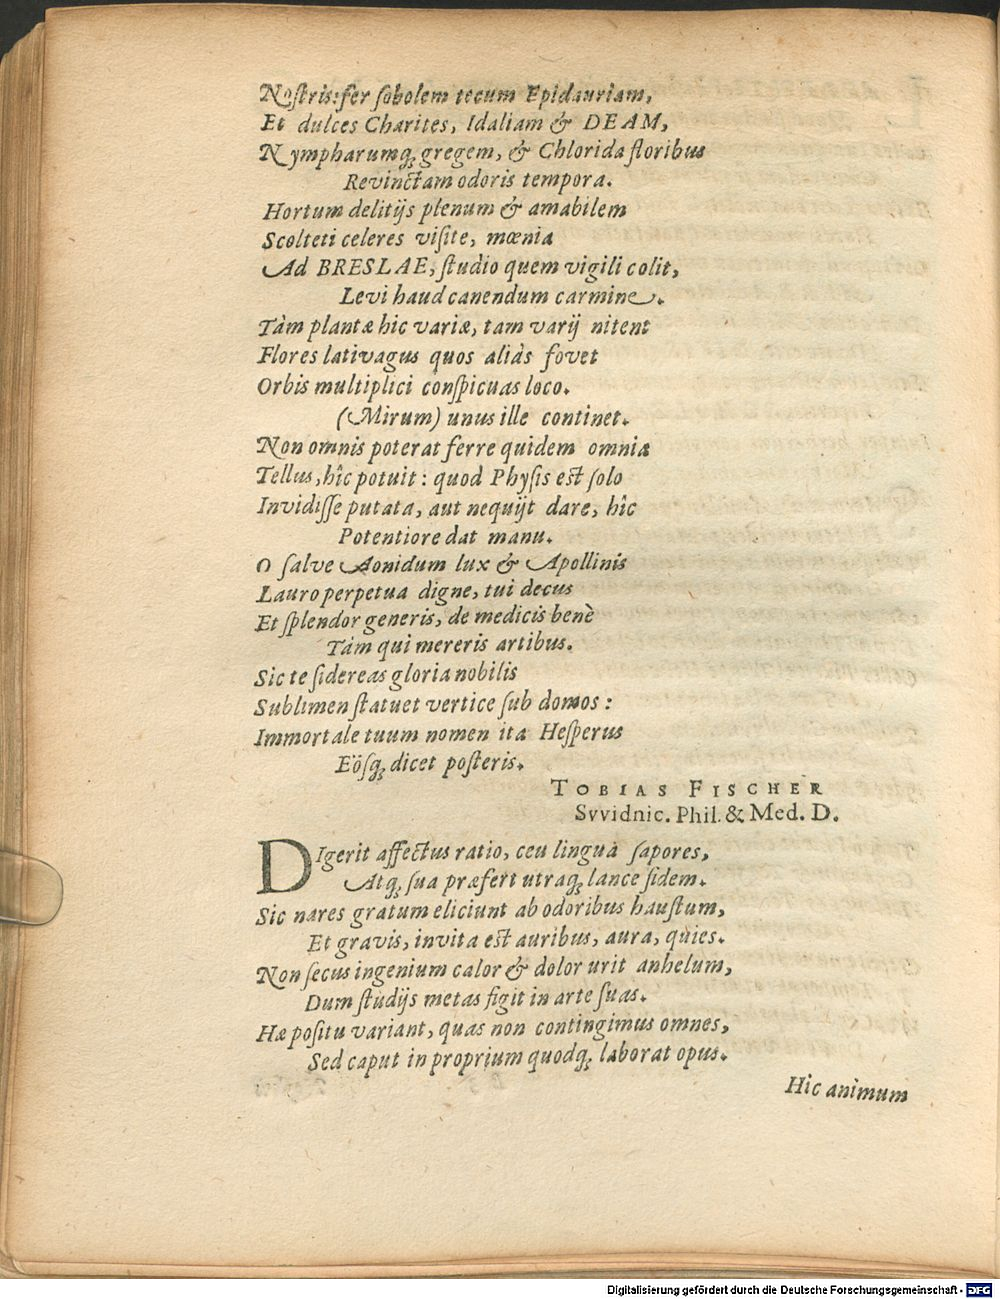 Noſtris: fer ſobolem tecum Epidauriam,
Et dulces Charites, Idaliam & DEAM,
Nympharumq; gregem, & Chlorida floribus
Revinctam odoris tempora.
Hortum delitijs plenum & amabilem
Scolteti celeres viſite, mœnia
Ad BRESLAE, ſtudio quem vigili colit,
Levi haud canendum carmine.
Tàm plantæ hic variæ, tam varij nitent
Flores lativagus quos aliàs fovet
Orbis multiplici conſpicuas loco.
(Mirum) unus ille continet.
Non omnis poterat ferre quidem omnia
Tellus, hîc potuit: quod Phyſis eſt ſolo
Invidiſſe putata, aut nequijt dare, hîc
Potentiore dat manu.
O ſalve Aonidum lux & Apollinis
Lauro perpetua digne, tui decus
Et ſplendor generis, de medicis benè
Tàm qui mereris artibus.
Sic te ſidereas gloria nobilis
Sublimen ſtatuet vertice ſub domos:
Immortale tuum nomen ita Heſperus
Eöſq; dicet poſteris.
TOBIAS FISCHER
Svvidnic. Phil. & Med. D.
DIgerit affectus ratio, ceu linguà ſapores,
Atq; ſua præfert utraq; lance fidem.
Sic nares gratum eliciunt ab odoribus hauſtum,
Et gravis, invita eſt auribus, aura, quies.
Non ſecus ingenium calor & dolor urit anhelum,
Dum ſtudijs metas figit in arte ſuas.
Hæ poſitu variant, quas non contingimus omnes,
Sed caput in proprium quodq; laborat opus.
Hic animum
Digitalisierung gefördert durch die Deutsche Forschungsgemeinschaft - DFG